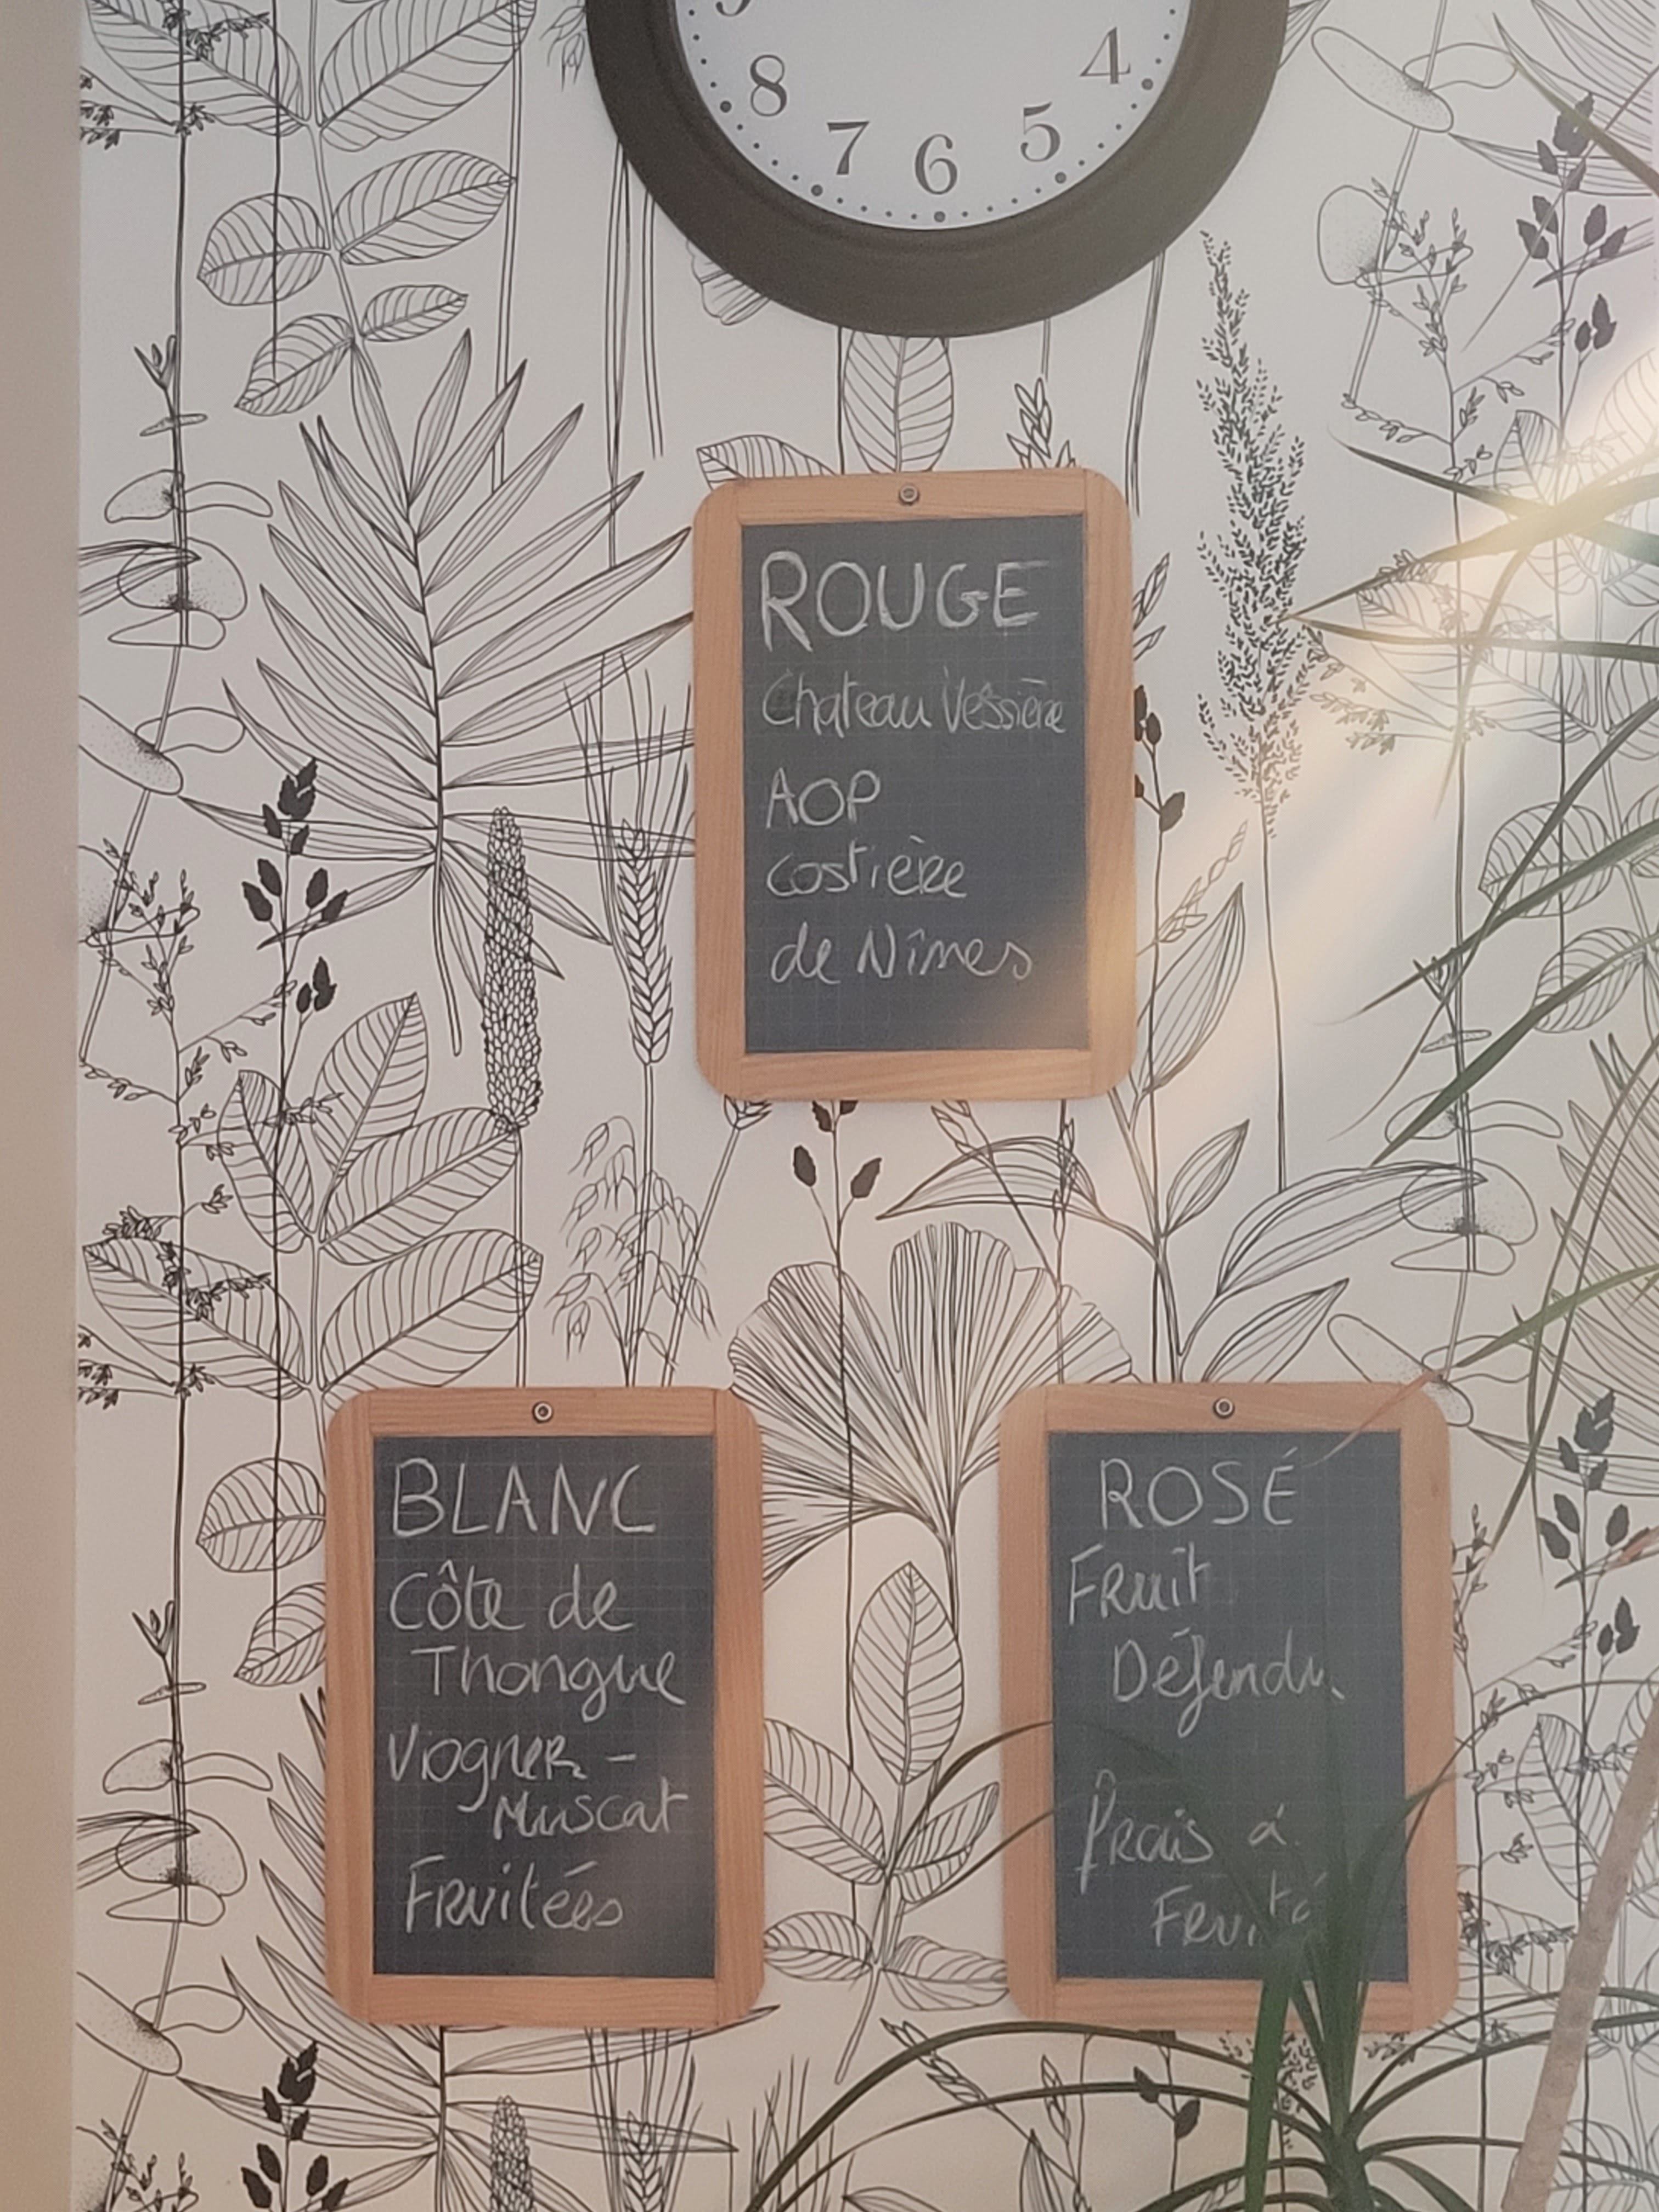 8
7
6
5
4
ROUGE
Chateau Vessière
AOP
costière
de Nîmes
BLANC
Côte de
Thongue
Viognier -
Muscat
Fruitées
ROSÉ
Fruit
Défendu.
Frais &
Fruité